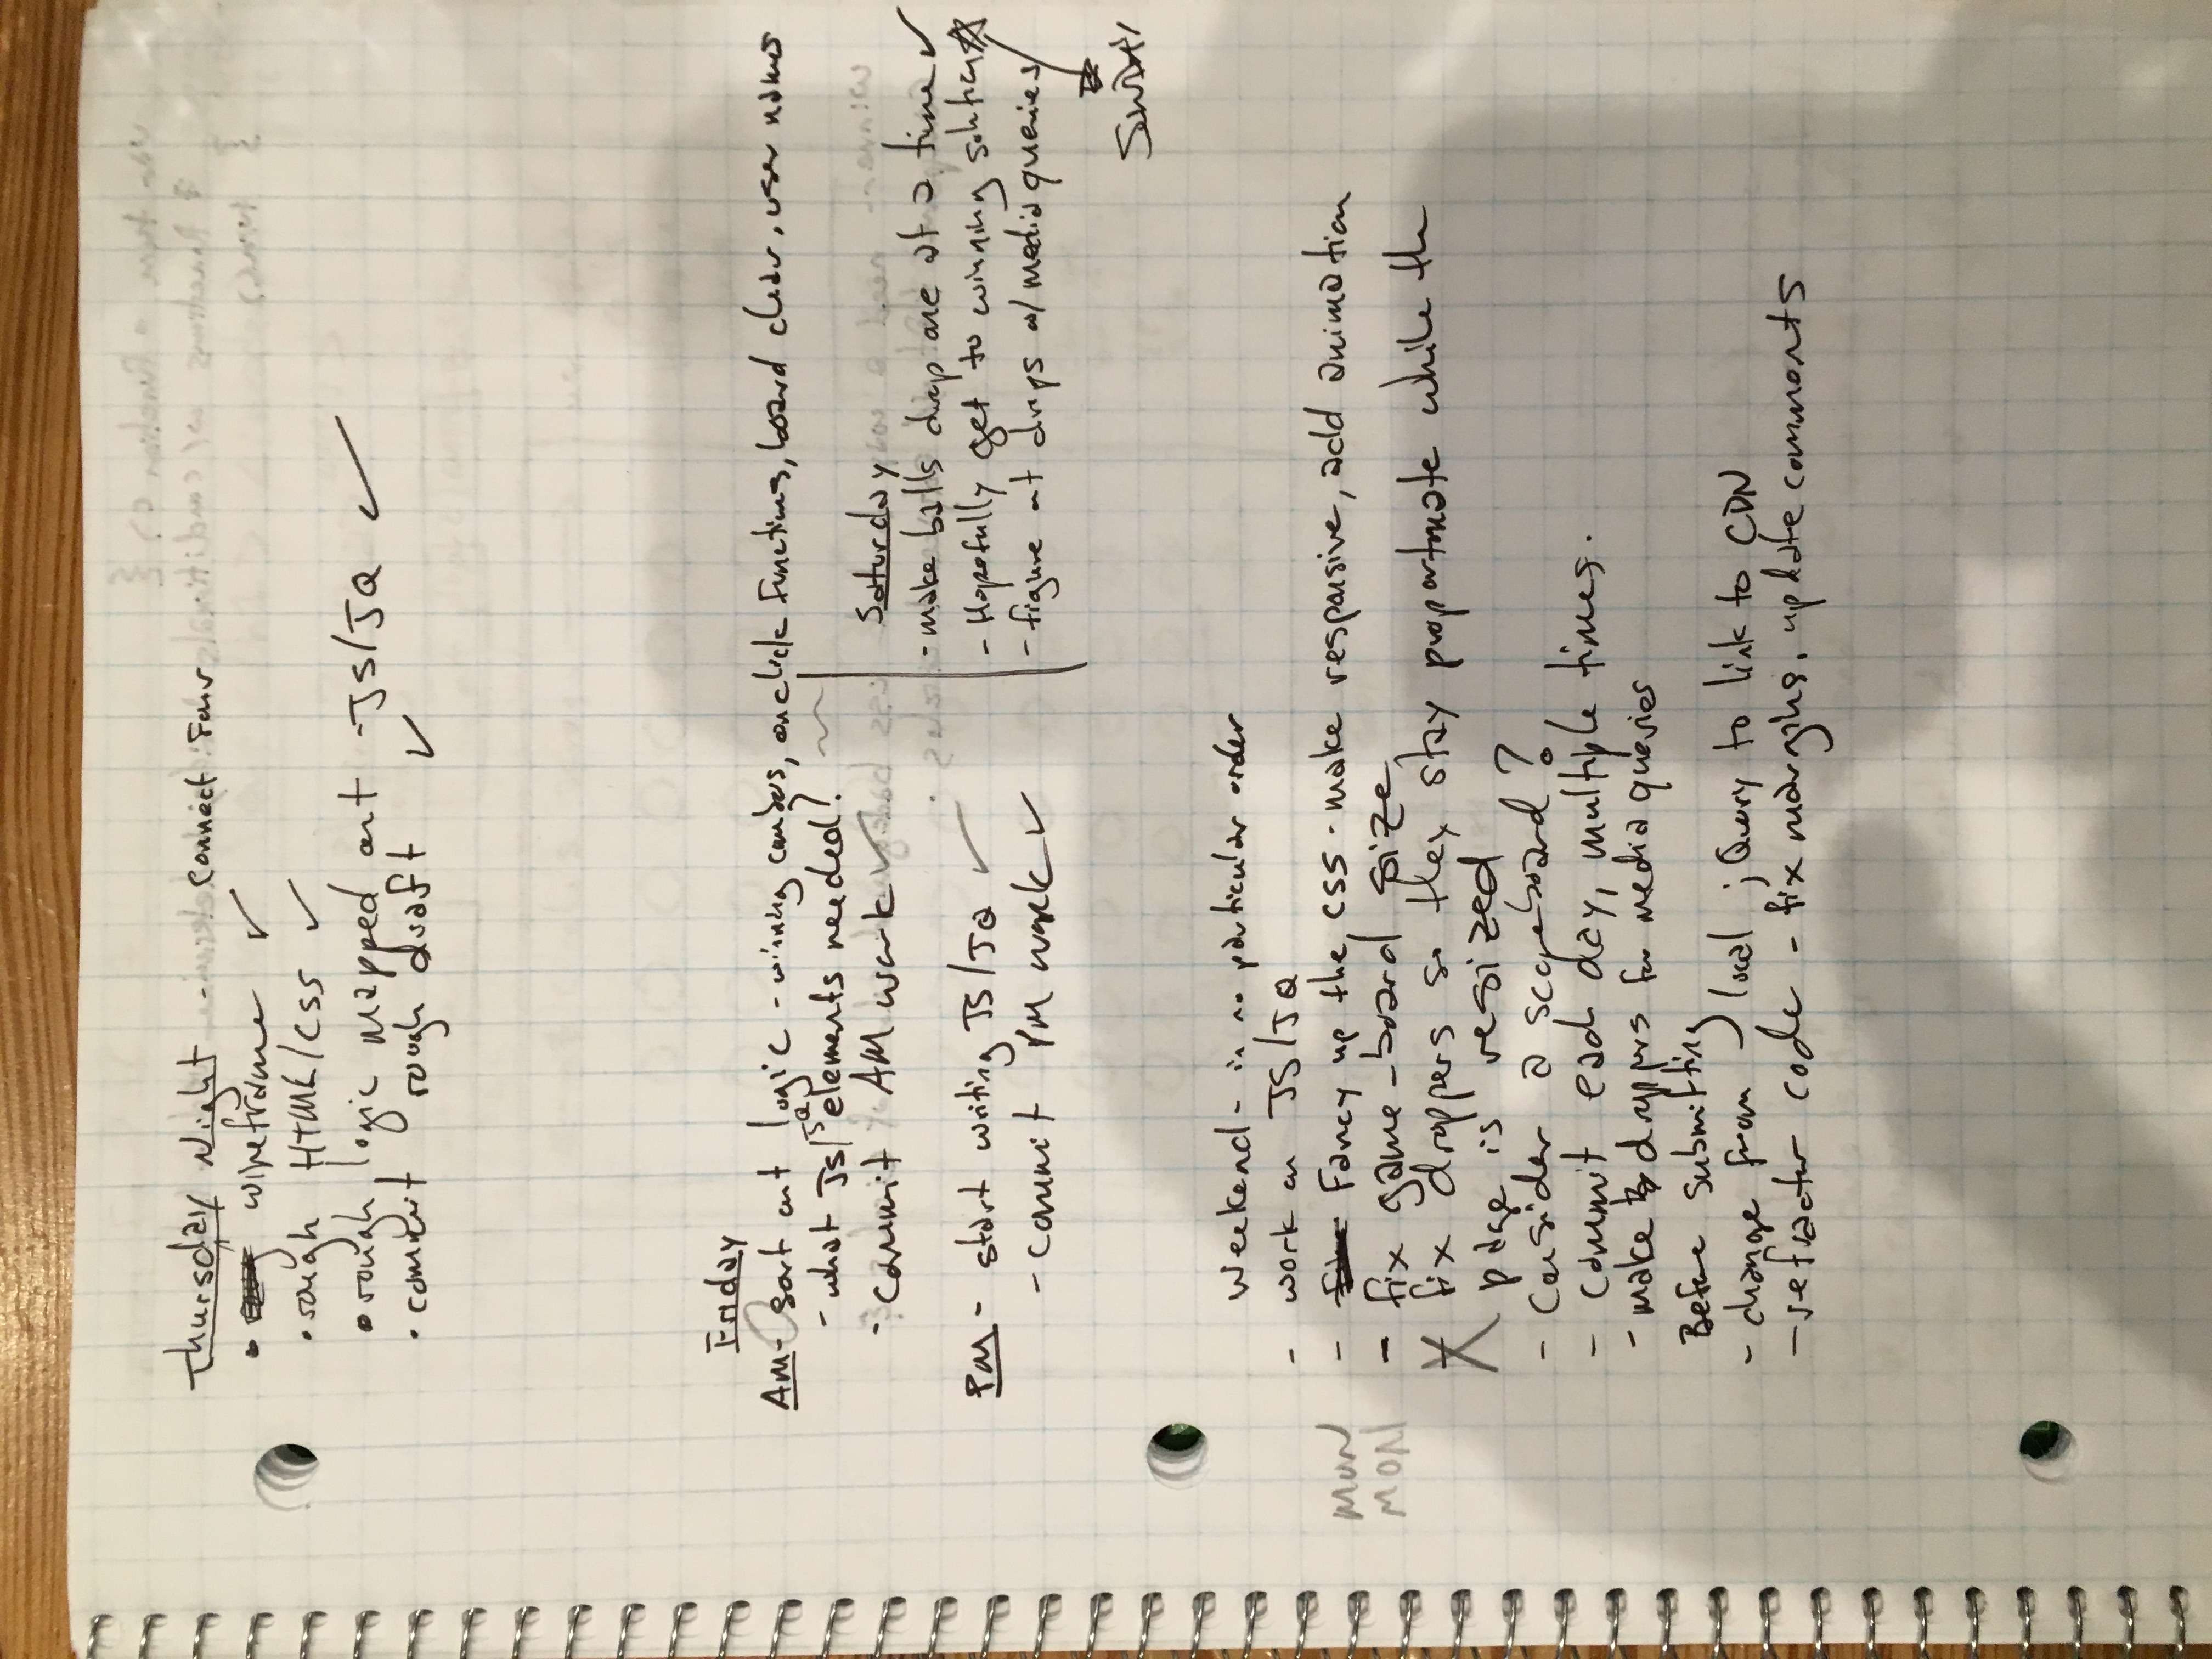 Thursday Night - Connect Four
• wireframe ✓
• rough HTML/CSS ✓
• rough logic mapped out - JS/JQ ✓
• commit rough draft ✓
Friday
AM - sort out logic - winning combos, onclick functions, board clear, user names
- what JS/JQ elements needed? ~
- commit AM work ✓
PM - start writing JS/JQ ✓
- commit PM work ✓
Saturday
- make balls drop one at a time ✓
- Hopefully get to winning solution ☆
- figure out drops w/ media queries
Sunday
Weekend - in no particular order
- work on JS/JQ
MON - Fancy up the CSS - make responsive, add animation
MON - fix game-board size
X fix droppers so they stay proportionate while the
page is resized
- Consider a scoreboard?
- commit each day, multiple times.
- make droppers for media queries
Before submitting
- change from local jQuery to link to CDN
- refractor code - fix margins, update comments